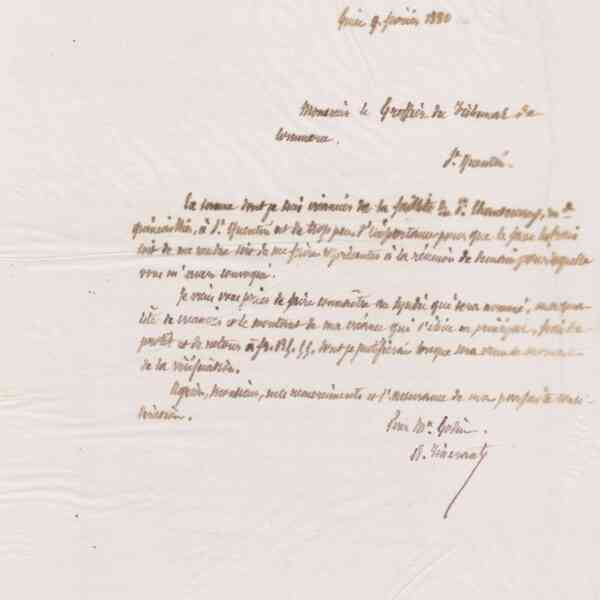 Guise 9 février 1880
Monsieur le Greffier du Tribunal de
commerce.
St. Quentin.
La somme dont je suis créancier de la faillite du Sr.
à St. Quentin est de trop peu d'importance pour que je fasse les frais
soit de me rendre soit de me faire représenter à la réunion de demain pour laquelle
vous m'avez convoqué.
Je viens vous prier de faire connaître au syndic qui sera nommé, ma qua-
lité de créancier et le montant de ma créance qui s'élève en principal,
et de retour à fr. dont je justifierai lorsque sera venu le moment
de la vérification.
Agréez, Monsieur, mes remerciements et l'assurance de ma parfaite consi-
dération.
Pour Mr. Godin.